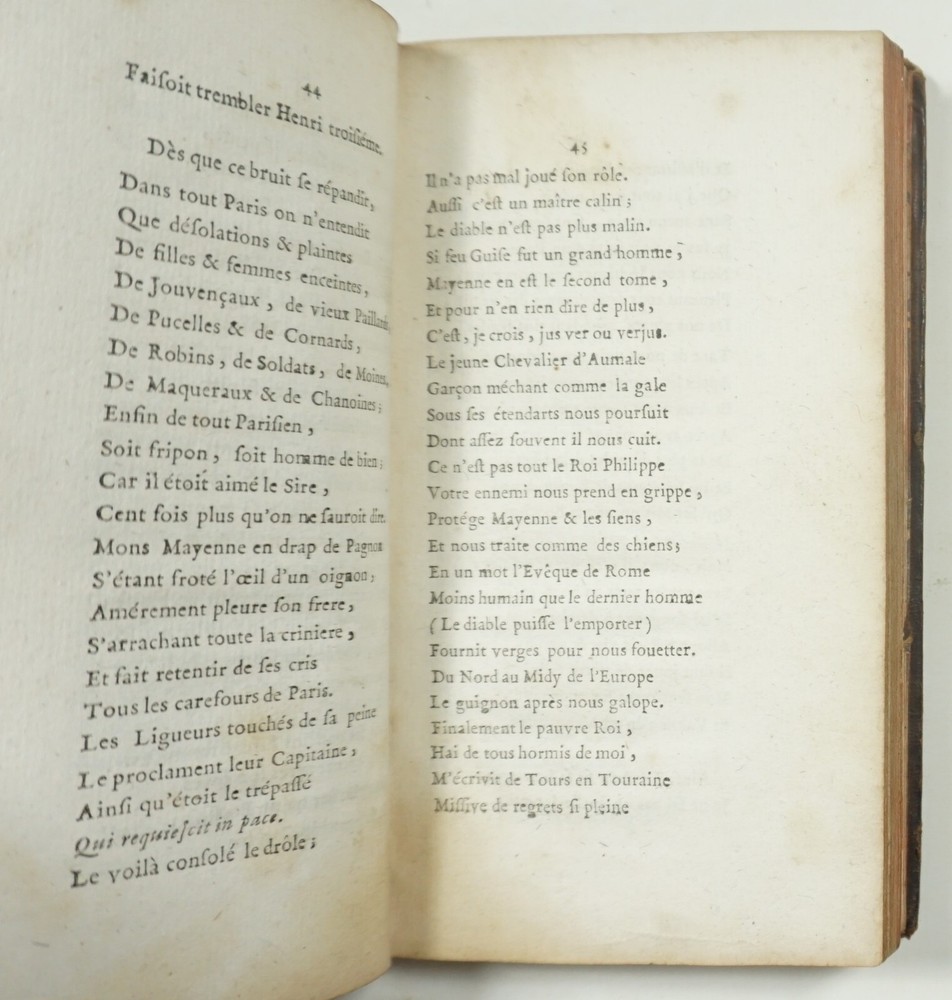 44
Faiſoit trembler Henri troiſiéme.
Dès que ce bruit ſe répandit,
Dans tout Paris on n'entendit
Que déſolations & plaintes
De filles & femmes enceintes,
De Jouvençaux, de vieux Paillards,
De Pucelles & de Cornards,
De Robins, de Soldats, de Moines,
De Maqueraux & de Chanoines;
Enfin de tout Pariſien,
Soit fripon, ſoit homme de bien;
Car il étoit aimé le Sire,
Cent fois plus qu'on ne ſauroit dire.
Mons Mayenne en drap de Pagnon
S'étant froté l'œil d'un oignon,
Amérement pleure ſon frere,
S'arrachant toute la criniere,
Et fait retentir de ſes cris
Tous les carefours de Paris.
Les Ligueurs touchés de ſa peine
Le proclament leur Capitaine,
Ainſi qu'étoit le trépaſſé
Qui requieſcit in pace.
Le voilà conſolé le drôle;
45
Il n'a pas mal joué ſon rôle.
Auſſi c'eſt un maître calin;
Le diable n'eſt pas plus malin.
Si feu Guiſe fut un grand homme,
Mayenne en eſt le ſecond tome,
Et pour n'en rien dire de plus,
C'eſt, je crois, jus ver ou verjus.
Le jeune Chevalier d'Aumale
Garçon méchant comme la gale
Sous ſes étendarts nous pourſuit
Dont aſſez ſouvent il nous cuit.
Ce n'eſt pas tout le Roi Philippe
Votre ennemi nous prend en grippe,
Protége Mayenne & les ſiens,
Et nous traite comme des chiens;
En un mot l'Evêque de Rome
Moins humain que le dernier homme
(Le diable puiſſe l'emporter)
Fournit verges pour nous fouetter.
Du Nord au Midy de l'Europe
Le guignon après nous galope.
Finalement le pauvre Roi,
Hai de tous hormis de moi,
M'écrivit de Tours en Touraine
Miſſive de regrets ſi pleine